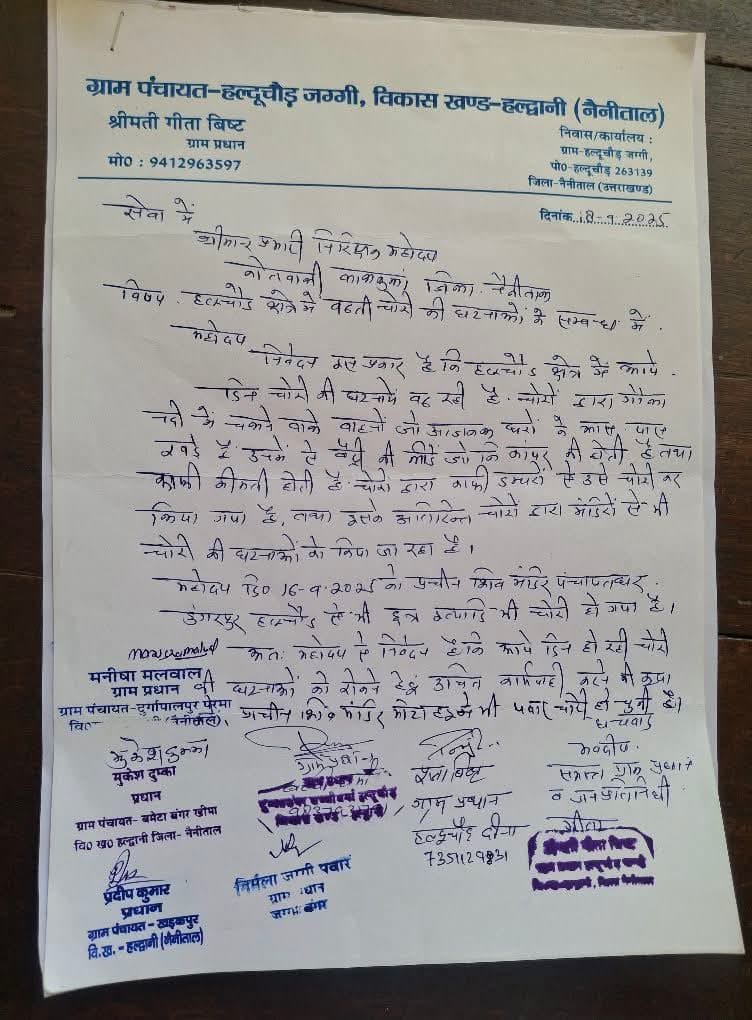 ग्राम पंचायत-हल्दूचौड़ जग्गी, विकास खण्ड-हल्द्वानी (नैनीताल)
श्रीमती गीता बिष्ट
ग्राम प्रधान
मो0 : 9412963597
निवास/कार्यालय :
ग्राम-हल्दूचौड़ जग्गी,
पो0-हल्दूचौड़ 263139
जिला-नैनीताल (उत्तराखण्ड)
दिनांक 18-9-2025
सेवा में
श्रीमान प्रभारी निरिक्षक महोदय
कोतवाली लालकुआं, जिला- नैनीताल
विषय- हल्दूचौड क्षेत्र में बढती चोरी की घटनाओं के सम्बन्ध में.
महोदय
निवेदन इस प्रकार है कि हल्दूचौड क्षेत्र में आये
दिन चोरी की घटनायें बढ रही है. चोरों द्वारा गौला
नदी में चलने वाले वाहनों जो आजकल घरों के आस पास
खडे हैं उनमें से बैट्री की लीडें जो कि कापर की होती है तथा
काफी कीमती होती है. चोरों द्वारा काफी डम्परों से उसे चोरी कर
लिया गया है, तथा इसके अतिरिक्त चोरों द्वारा मंदिरों से भी
चोरी की घटनाओं को किया जा रहा है।
महोदय दि0 16-9-2025 को प्राचीन शिव मंदिर पंचायतघर
डुंगरपुर हल्दूचौड से भी छत्र इत्यादि भी चोरी हो गया है।
अतः महोदय से निवेदन है कि आये दिन हो रही चोरी
की घटनाओं को रोकने हेतु उचित कार्यवाही करने की कृपा
प्राचीन शिव मंदिर से भी चोरी हो चुकी है।
धन्यवाद
मनीषा मलवाल
ग्राम प्रधान
ग्राम पंचायत-दुर्गापालपुर परमा
(नैनीताल)
मुकेश दुम्का
मुकेश दुम्का
प्रधान
ग्राम पंचायत- बमेटा बंगर खीमा
वि0 ख0 हल्द्वानी जिला- नैनीताल
ग्राम प्रधान
ग्राम प्रधान
हल्दूचौड दीना
7351129831
समस्त ग्राम प्रधान
व जनप्रतिनिधी
गीता
श्रीमती गीता बिष्ट
प्रदीप कुमार
प्रधान
ग्राम पंचायत- खड़कपुर
वि.ख. - हल्द्वानी (नैनीताल)
निर्मला जग्गी पवार
ग्राम